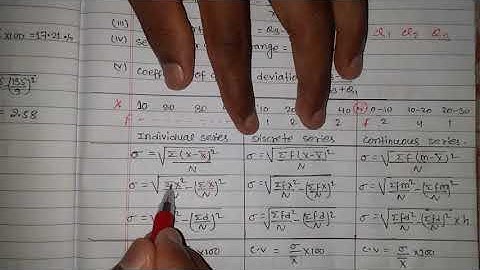 (iii)
(iv) se range =
(v) coeff of deviation
x100 = 17.21 %
= 2.58
Q₁ Q₂ Q₃
x 10 20 30 10 20 40 0-10 10-20 20-30
f 2 2 2 4 1
Individual series Discrete series Continuous series
σ = √Σ(x-x̄)²/N σ = √Σf(x-x̄)²/N σ = √Σf(m-x̄)²/N
σ = √Σx²/N - (Σx/N)² σ = √Σfx²/N - (Σfx/N)² σ = √Σfm²/N - (Σfm/N)²
σ = √ d²/N - (Σd/N)² σ = √Σfd²/N - (Σfd/N)² σ = √Σfd²/N - (Σfd/N)² x h
x100 C.V = σ/x̄ x100 C.V = σ/x̄ x100